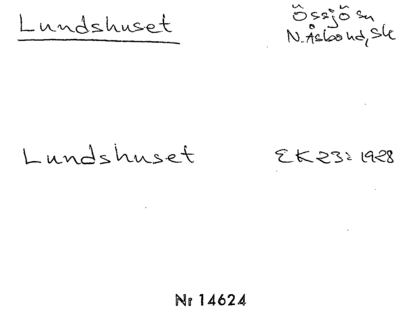 Lundshuset
Össjö sn
N. Åsbo hd, Sk
Lundshuset
EK 23: 1928
Nr 14624